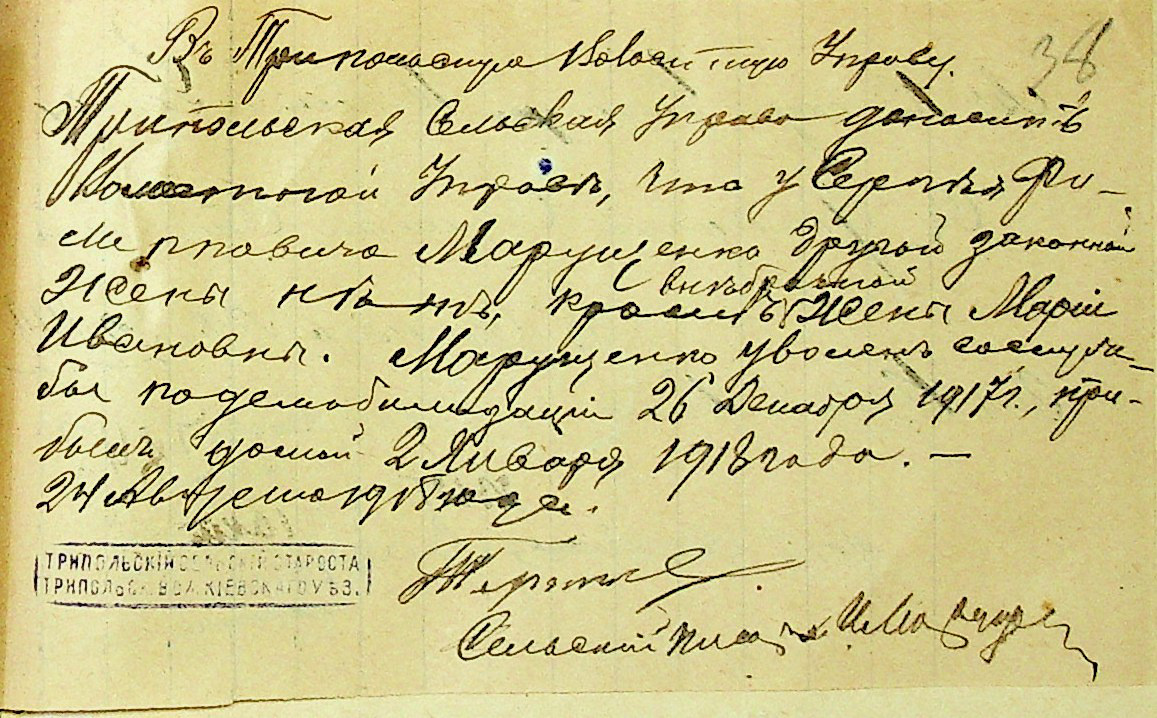 Въ Трипольскую Волостную Управу.
38
Трипольская Сельская Управа доноситъ
Волостной Управѣ, что у Сергѣя Ди-
митріевича Марущенко другой законной
внѣбрачной
Жены нѣтъ, кромѣ Жены Маріи
Ивановны. Марущенко уволенъ со служ-
бы по демобилизаціи 26 Декабря 1917 г., при-
былъ домой 2 Января 1918 года. —
24 Августа 1918 года.
ТРИПОЛЬСКІЙ СЕЛЬСКІЙ СТАРОСТА
ТРИПОЛЬСК. ВОЛ. КІЕВСКАГО УѢЗ.
Сельскій писарь